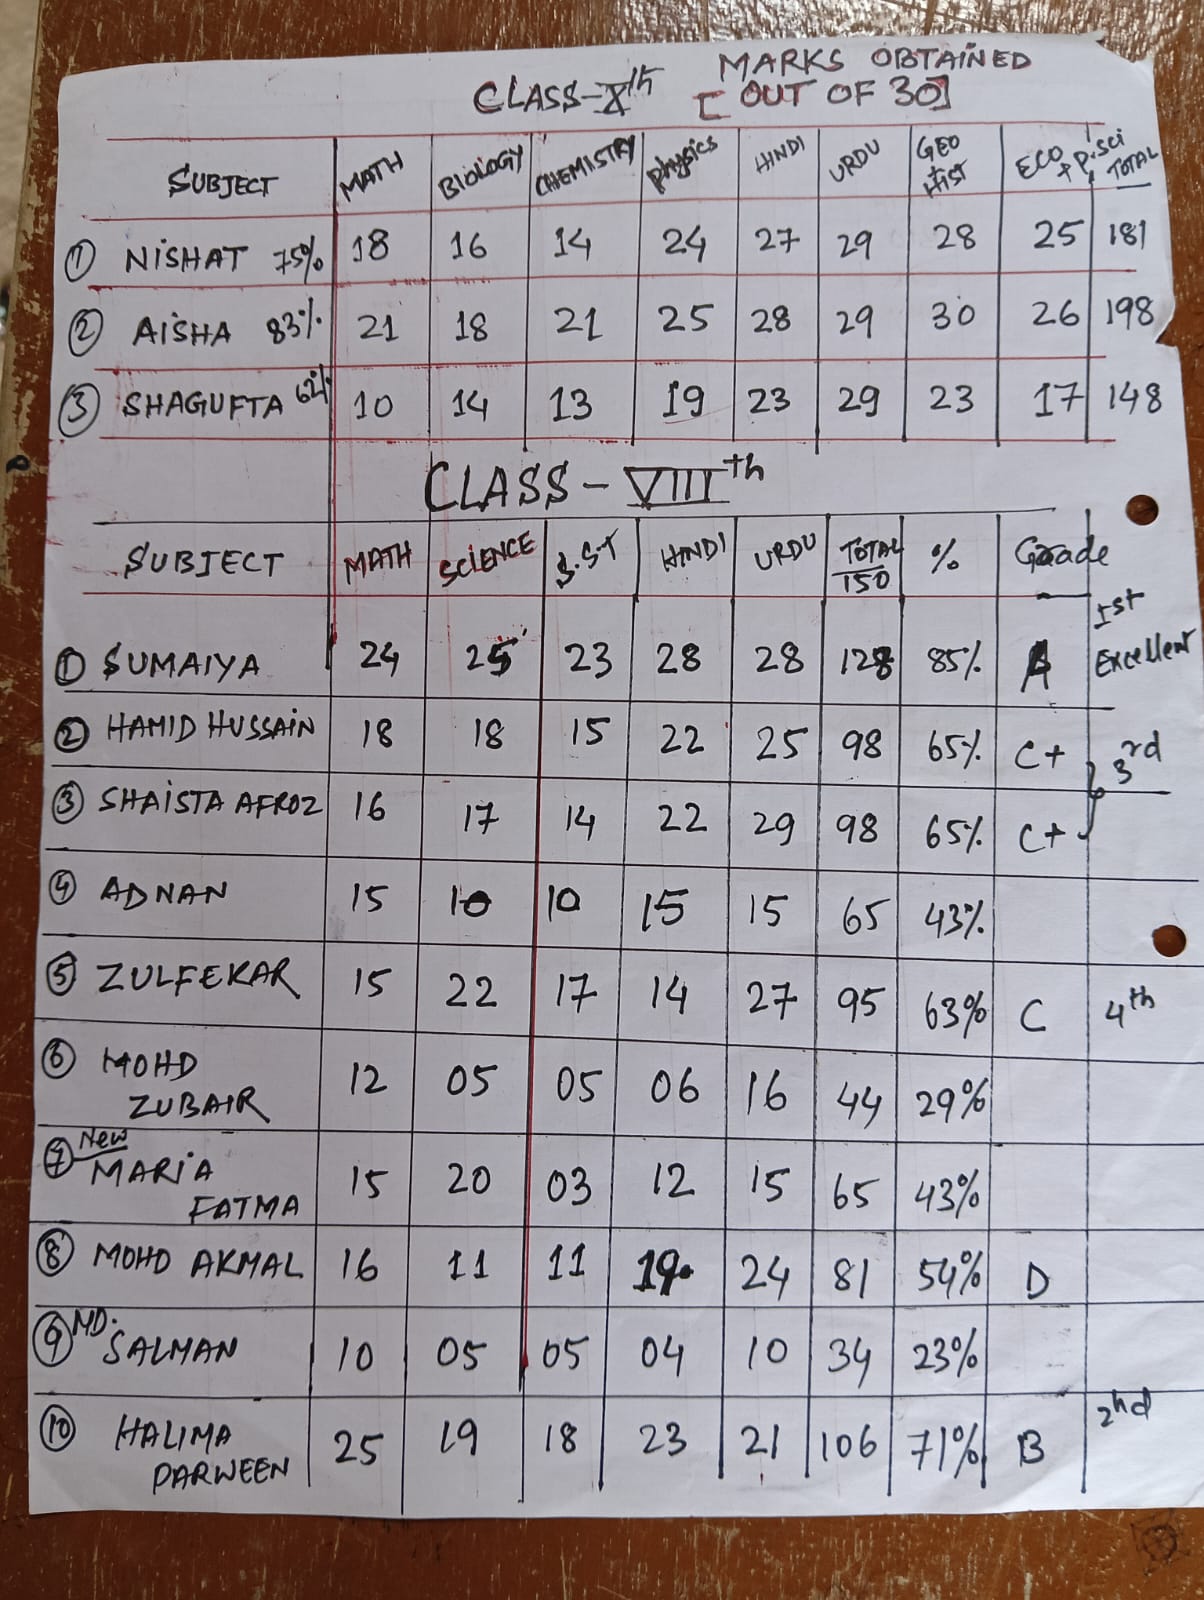 MARKS OBTAINED
CLASS-Xth [OUT OF 30]
SUBJECT MATH BIOLOGY CHEMISTRY Physics HINDI URDU GEO + HIST ECO + P.Sci TOTAL
① NISHAT 75% 18 16 14 24 27 29 28 25 181
② AISHA 83% 21 18 21 25 28 29 30 26 198
③ SHAGUFTA 62% 10 14 13 19 23 29 23 17 148
CLASS - VIIIth
SUBJECT MATH SCIENCE S.ST HINDI URDU TOTAL/150 % Grade
① SUMAIYA 24 25 23 28 28 128 85% A Ist Excellent
② HAMID HUSSAIN 18 18 15 22 25 98 65% C+ 3rd
③ SHAISTA AFROZ 16 17 14 22 29 98 65% C+
④ ADNAN 15 10 10 15 15 65 43%
⑤ ZULFEKAR 15 22 17 14 27 95 63% C 4th
⑥ MOHD ZUBAIR 12 05 05 06 16 44 29%
⑦ New MARIA FATMA 15 20 03 12 15 65 43%
⑧ MOHD AKMAL 16 11 11 19 24 81 54% D
⑨ MD. SALMAN 10 05 05 04 10 34 23%
⑩ HALIMA PARWEEN 25 19 18 23 21 106 71% B 2nd